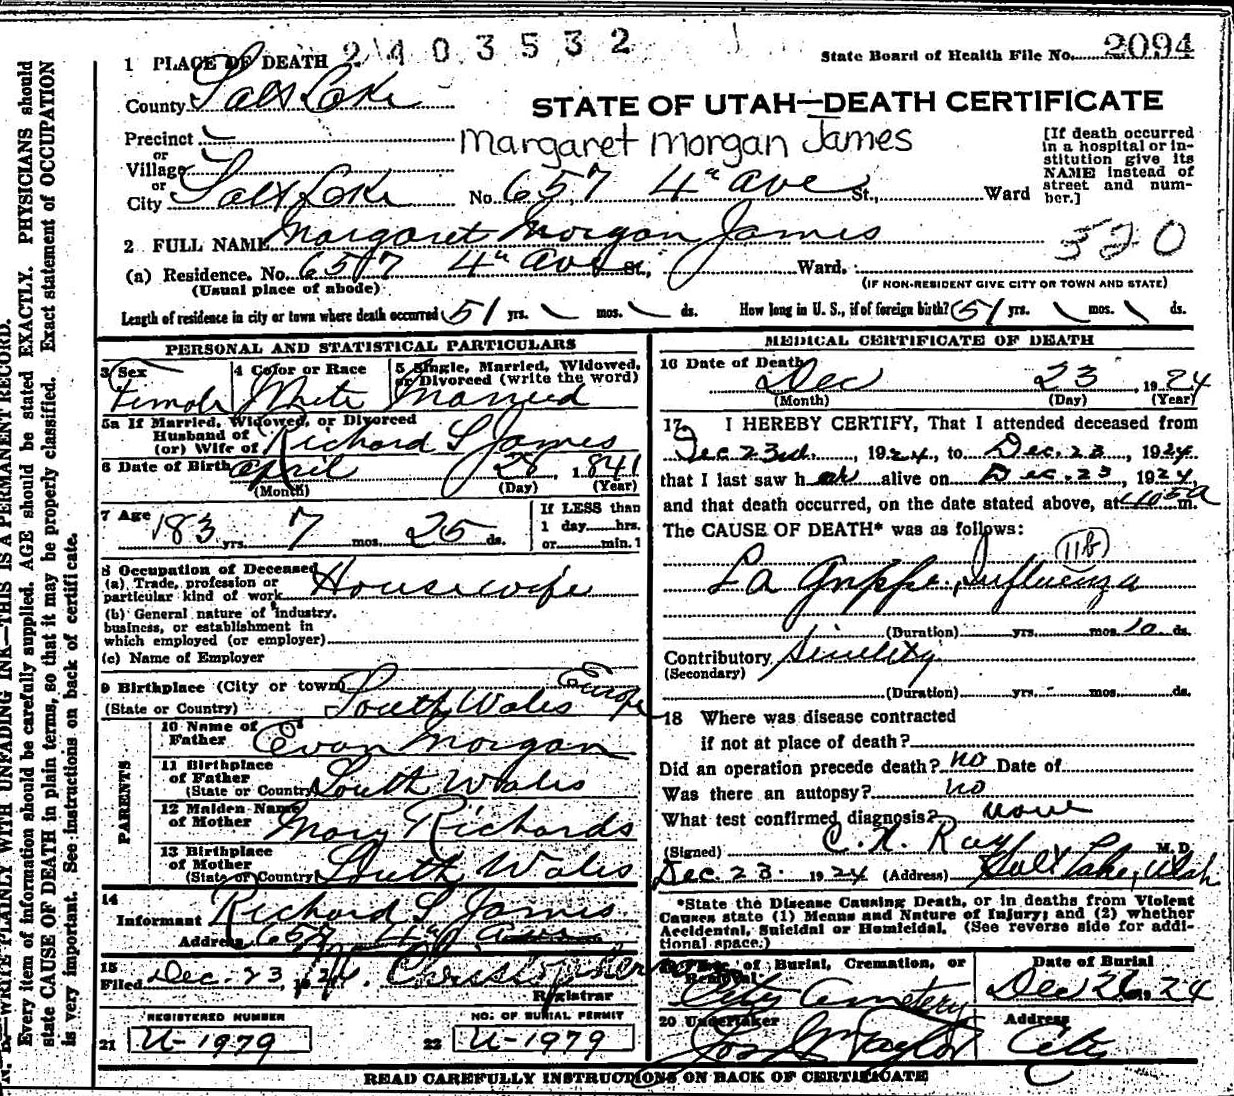 1 PLACE OF DEATH 2403532
State Board of Health File No. 2094
County Salt Lake
STATE OF UTAH—DEATH CERTIFICATE
Precinct
Margaret Morgan James
[If death occurred
in a hospital or in-
stitution give its
NAME instead of
street and num-
ber.]
or
Village
or
City Salt Lake No. 657 4th Ave St., Ward
2 FULL NAME Margaret Morgan James
320
(a) Residence. No. 657 4th Ave St., Ward.
(Usual place of abode) (IF NON-RESIDENT GIVE CITY OR TOWN AND STATE)
Length of residence in city or town where death occurred 51 yrs. mos. ds. How long in U. S., if of foreign birth? 51 yrs. mos. ds.
PERSONAL AND STATISTICAL PARTICULARS
3 Sex 4 Color or Race 5 Single, Married, Widowed,
or Divorced (write the word)
Female White Married
5a If Married, Widowed, or Divorced
Husband of
(or) Wife of Richard L James
6 Date of Birth April 28, 1841
(Month) (Day) (Year)
7 Age 83 yrs. 7 mos. 25 ds.
If LESS than
1 day hrs.
or min.1
8 Occupation of Deceased
(a) Trade, profession or
particular kind of work Housewife
(b) General nature of industry,
business, or establishment in
which employed (or employer)
(c) Name of Employer
9 Birthplace (City or town)
(State or Country) South Wales Europe
PARENTS
10 Name of
Father Evan Morgan
11 Birthplace
of Father
(State or Country) South Wales
12 Maiden Name
of Mother Mary Richards
13 Birthplace
of Mother
(State or Country) South Wales
14
Informant Richard L James
Address 657 4th Ave
15
Filed Dec. 23, 1924
Registrar
REGISTERED NUMBER NO. OF BURIAL PERMIT
21 U-1979 22 U-1979
MEDICAL CERTIFICATE OF DEATH
16 Date of Death
Dec 23, 1924
(Month) (Day) (Year)
17 I HEREBY CERTIFY, That I attended deceased from
Dec 23rd, 1924, to Dec. 23, 1924
that I last saw her alive on Dec. 23, 1924,
and that death occurred, on the date stated above, at m.
The CAUSE OF DEATH* was as follows:
11b
La Grippe, Influenza
(Duration) yrs. mos. 10 ds.
Contributory Senility
(Secondary)
(Duration) yrs. mos. ds.
18 Where was disease contracted
if not at place of death?
Did an operation precede death? no Date of
Was there an autopsy? no
What test confirmed diagnosis? none
(Signed) C. N. Ray M. D.
Dec. 23. 1924 (Address) Salt Lake, Utah
*State the Disease Causing Death, or in deaths from Violent
Causes state (1) Means and Nature of Injury; and (2) whether
Accidental, Suicidal or Homicidal. (See reverse side for addi-
tional space.)
19 Place of Burial, Cremation, or
Removal
City Cemetery
Date of Burial
Dec 26, 1924
20 Undertaker
Jos Wm Taylor
Address
City
READ CAREFULLY INSTRUCTIONS ON BACK OF CERTIFICATE
N. B.—WRITE PLAINLY WITH UNFADING INK—THIS IS A PERMANENT RECORD.
Every item of information should be carefully supplied. AGE should be stated EXACTLY. PHYSICIANS should
state CAUSE OF DEATH in plain terms, so that it may be properly classified. Exact statement of OCCUPATION
is very important. See instructions on back of certificate.